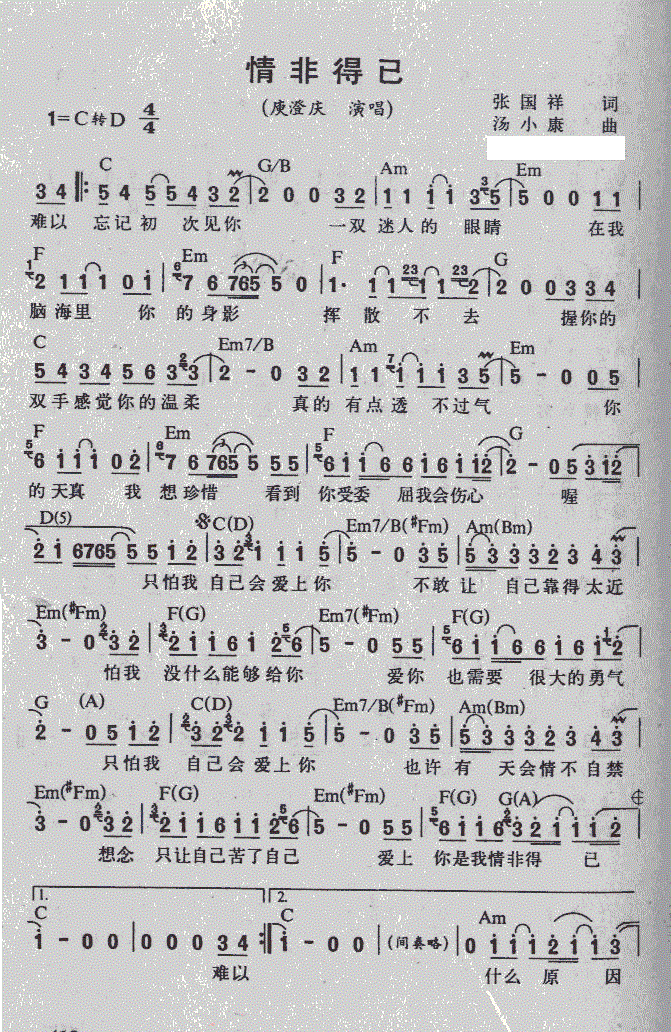 情非得已
(庾澄庆 演唱)
张国祥 词
1=C转D 4/4
汤小康 曲
C G/B Am Em
3 4 5 4 5 5 4 3 2 2 0 0 3 2 1 1 1 1 3 5 5 0 0 1 1
难以 忘记初 次见你 一双 迷人的 眼睛 在我
F Em F G
2 1 1 1 0 1 7 6 765 5 0 1· 1 1 1 2 2 0 0 3 3 4
脑海里 你 的身影 挥 散 不 去 握你的
C Em7/B Am Em
5 4 3 4 5 6 3 3 2 - 0 3 2 1 1 1 1 1 3 5 5 - 0 0 5
双手感觉你的温柔 真的 有点透 不过气 你
F Em F G
6 1 1 1 0 2 7 6 765 5 5 5 6 1 1 6 6 1 6 1 12 2 - 0 5 3 12
的天真 我 想珍惜 看到 你受委 屈我会伤心 喔
D(5) C(D) Em7/B(#Fm) Am(Bm)
2 1 6765 5 5 1 2 3 2 1 1 1 5 5 - 0 3 5 5 3 3 3 3 2 3 4 3
只怕我 自己会爱上你 不敢让 自己靠得太近
Em(#Fm) F(G) Em7(#Fm) F(G)
3 - 0 3 2 2 1 1 6 1 2 6 5 - 0 5 5 6 1 1 6 6 1 6 1 2
怕我 没什么能够给你 爱你 也需要 很大的勇气
G (A) C(D) Em7/B(#Fm) Am(Bm)
2 - 0 5 1 2 3 2 2 1 1 5 5 - 0 3 5 5 3 3 3 3 2 3 4 3
只怕我 自己会爱上你 也许有 天会情不自禁
Em(#Fm) F(G) Em(#Fm) F(G) G(A)
3 - 0 3 2 2 1 1 6 1 1 2 6 5 - 0 5 5 6 1 1 6 3 2 1 1 1 2
想念 只让自己苦了自己 爱上 你是我情非得 已
1. 2.
C C Am
1 - 0 0 0 0 0 3 4 1 - 0 0 (间奏略) 0 1 1 1 2 1 1 3
难以 什么 原 因